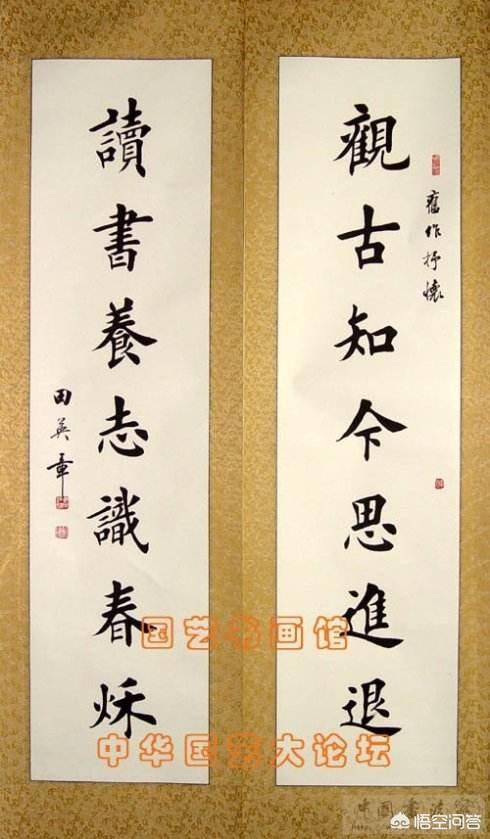 觀古知今思進退
舊作抒懷
讀書養志識春秌
田英章
国艺书画馆
中华国艺大论坛
中国書法
悟空问答